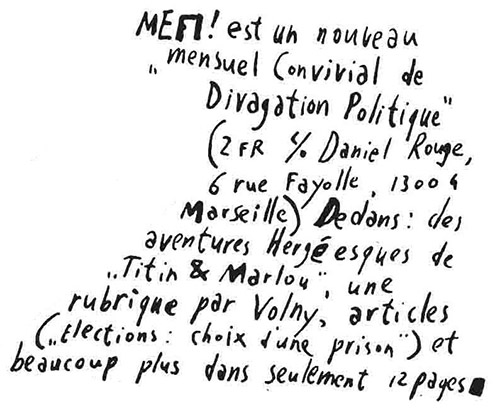 MEΠ! est un nouveau
„mensuel Convivial de
Divagation Politique"
(2 FR c/o Daniel Rouge,
6 rue Fayolle, 13004
Marseille) Dedans: des
aventures Hergéesques de
„Titin & Marlou", une
rubrique par Volny, articles
(„Elections: choix d'une prison") et
beaucoup plus dans seulement 12 pages